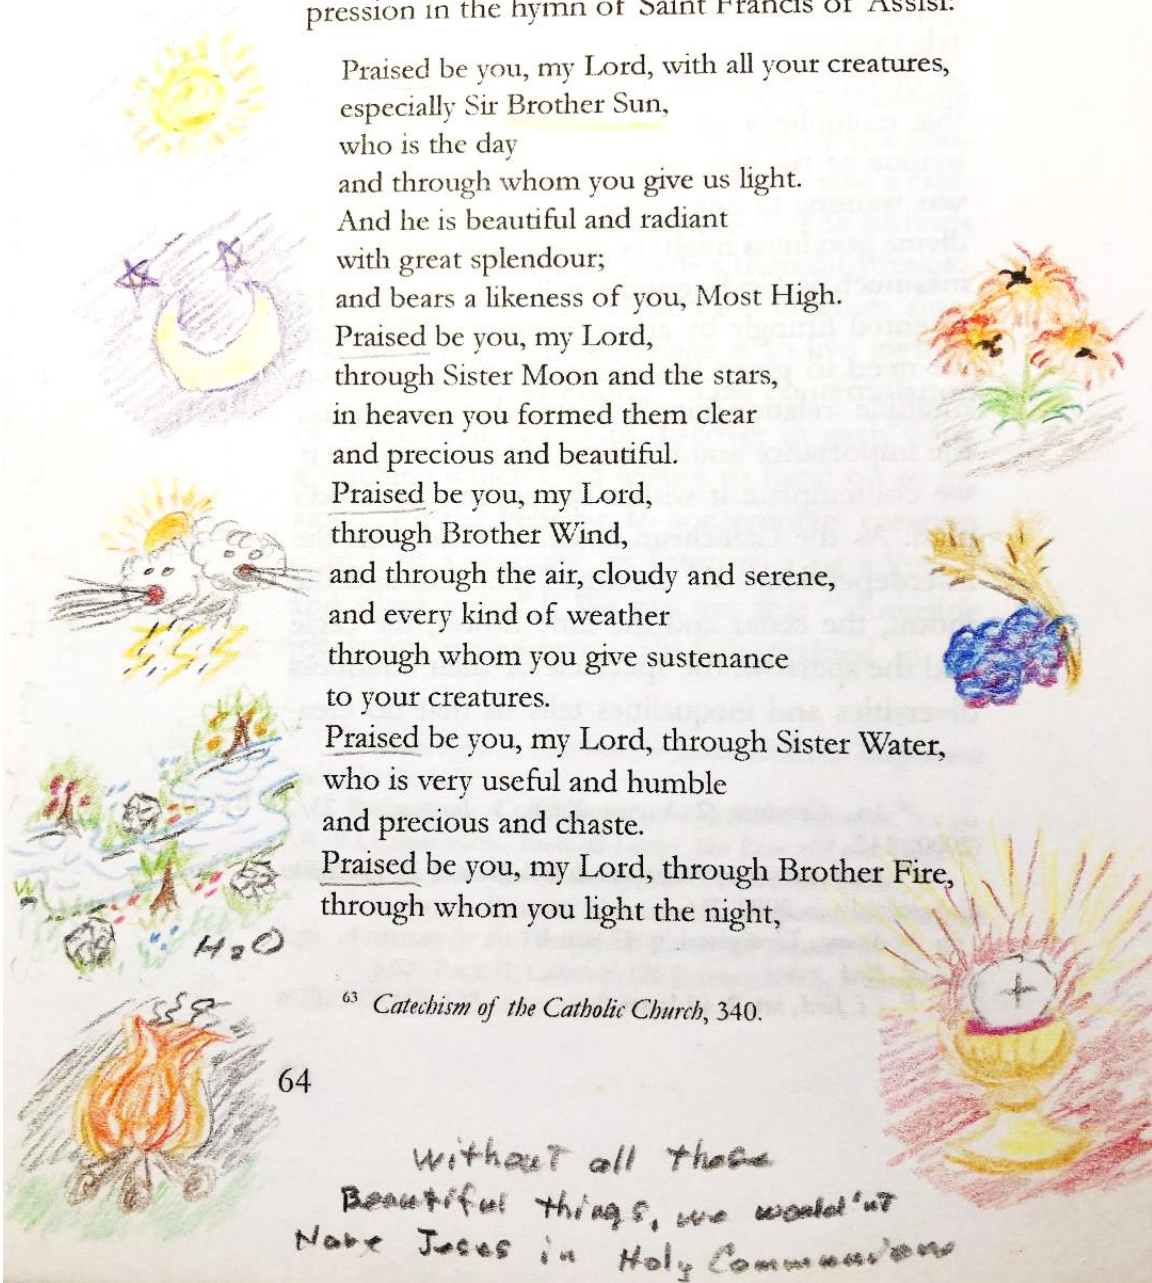 pression in the hymn of Saint Francis of Assisi:
Praised be you, my Lord, with all your creatures,
especially Sir Brother Sun,
who is the day
and through whom you give us light.
And he is beautiful and radiant
with great splendour;
and bears a likeness of you, Most High.
Praised be you, my Lord,
through Sister Moon and the stars,
in heaven you formed them clear
and precious and beautiful.
Praised be you, my Lord,
through Brother Wind,
and through the air, cloudy and serene,
and every kind of weather
through whom you give sustenance
to your creatures.
Praised be you, my Lord, through Sister Water,
who is very useful and humble
and precious and chaste.
Praised be you, my Lord, through Brother Fire,
through whom you light the night,
H2O
63 Catechism of the Catholic Church, 340.
64
Without all these
Beautiful things, we would'nt
Have Jesus in Holy Communion